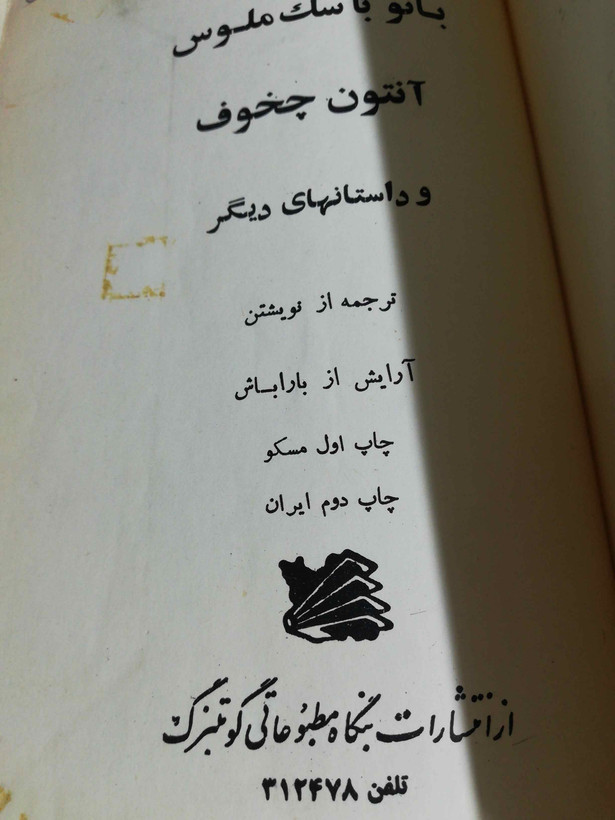 بانو با سگ ملوس
آنتون چخوف
و داستانهای دیگر
ترجمه از نویشتن
آرایش از باراباش
چاپ اول مسکو
چاپ دوم ایران
از انتشارات بنگاه مطبوعاتی گوتنبرگ
تلفن ۳۱۲۴۷۸